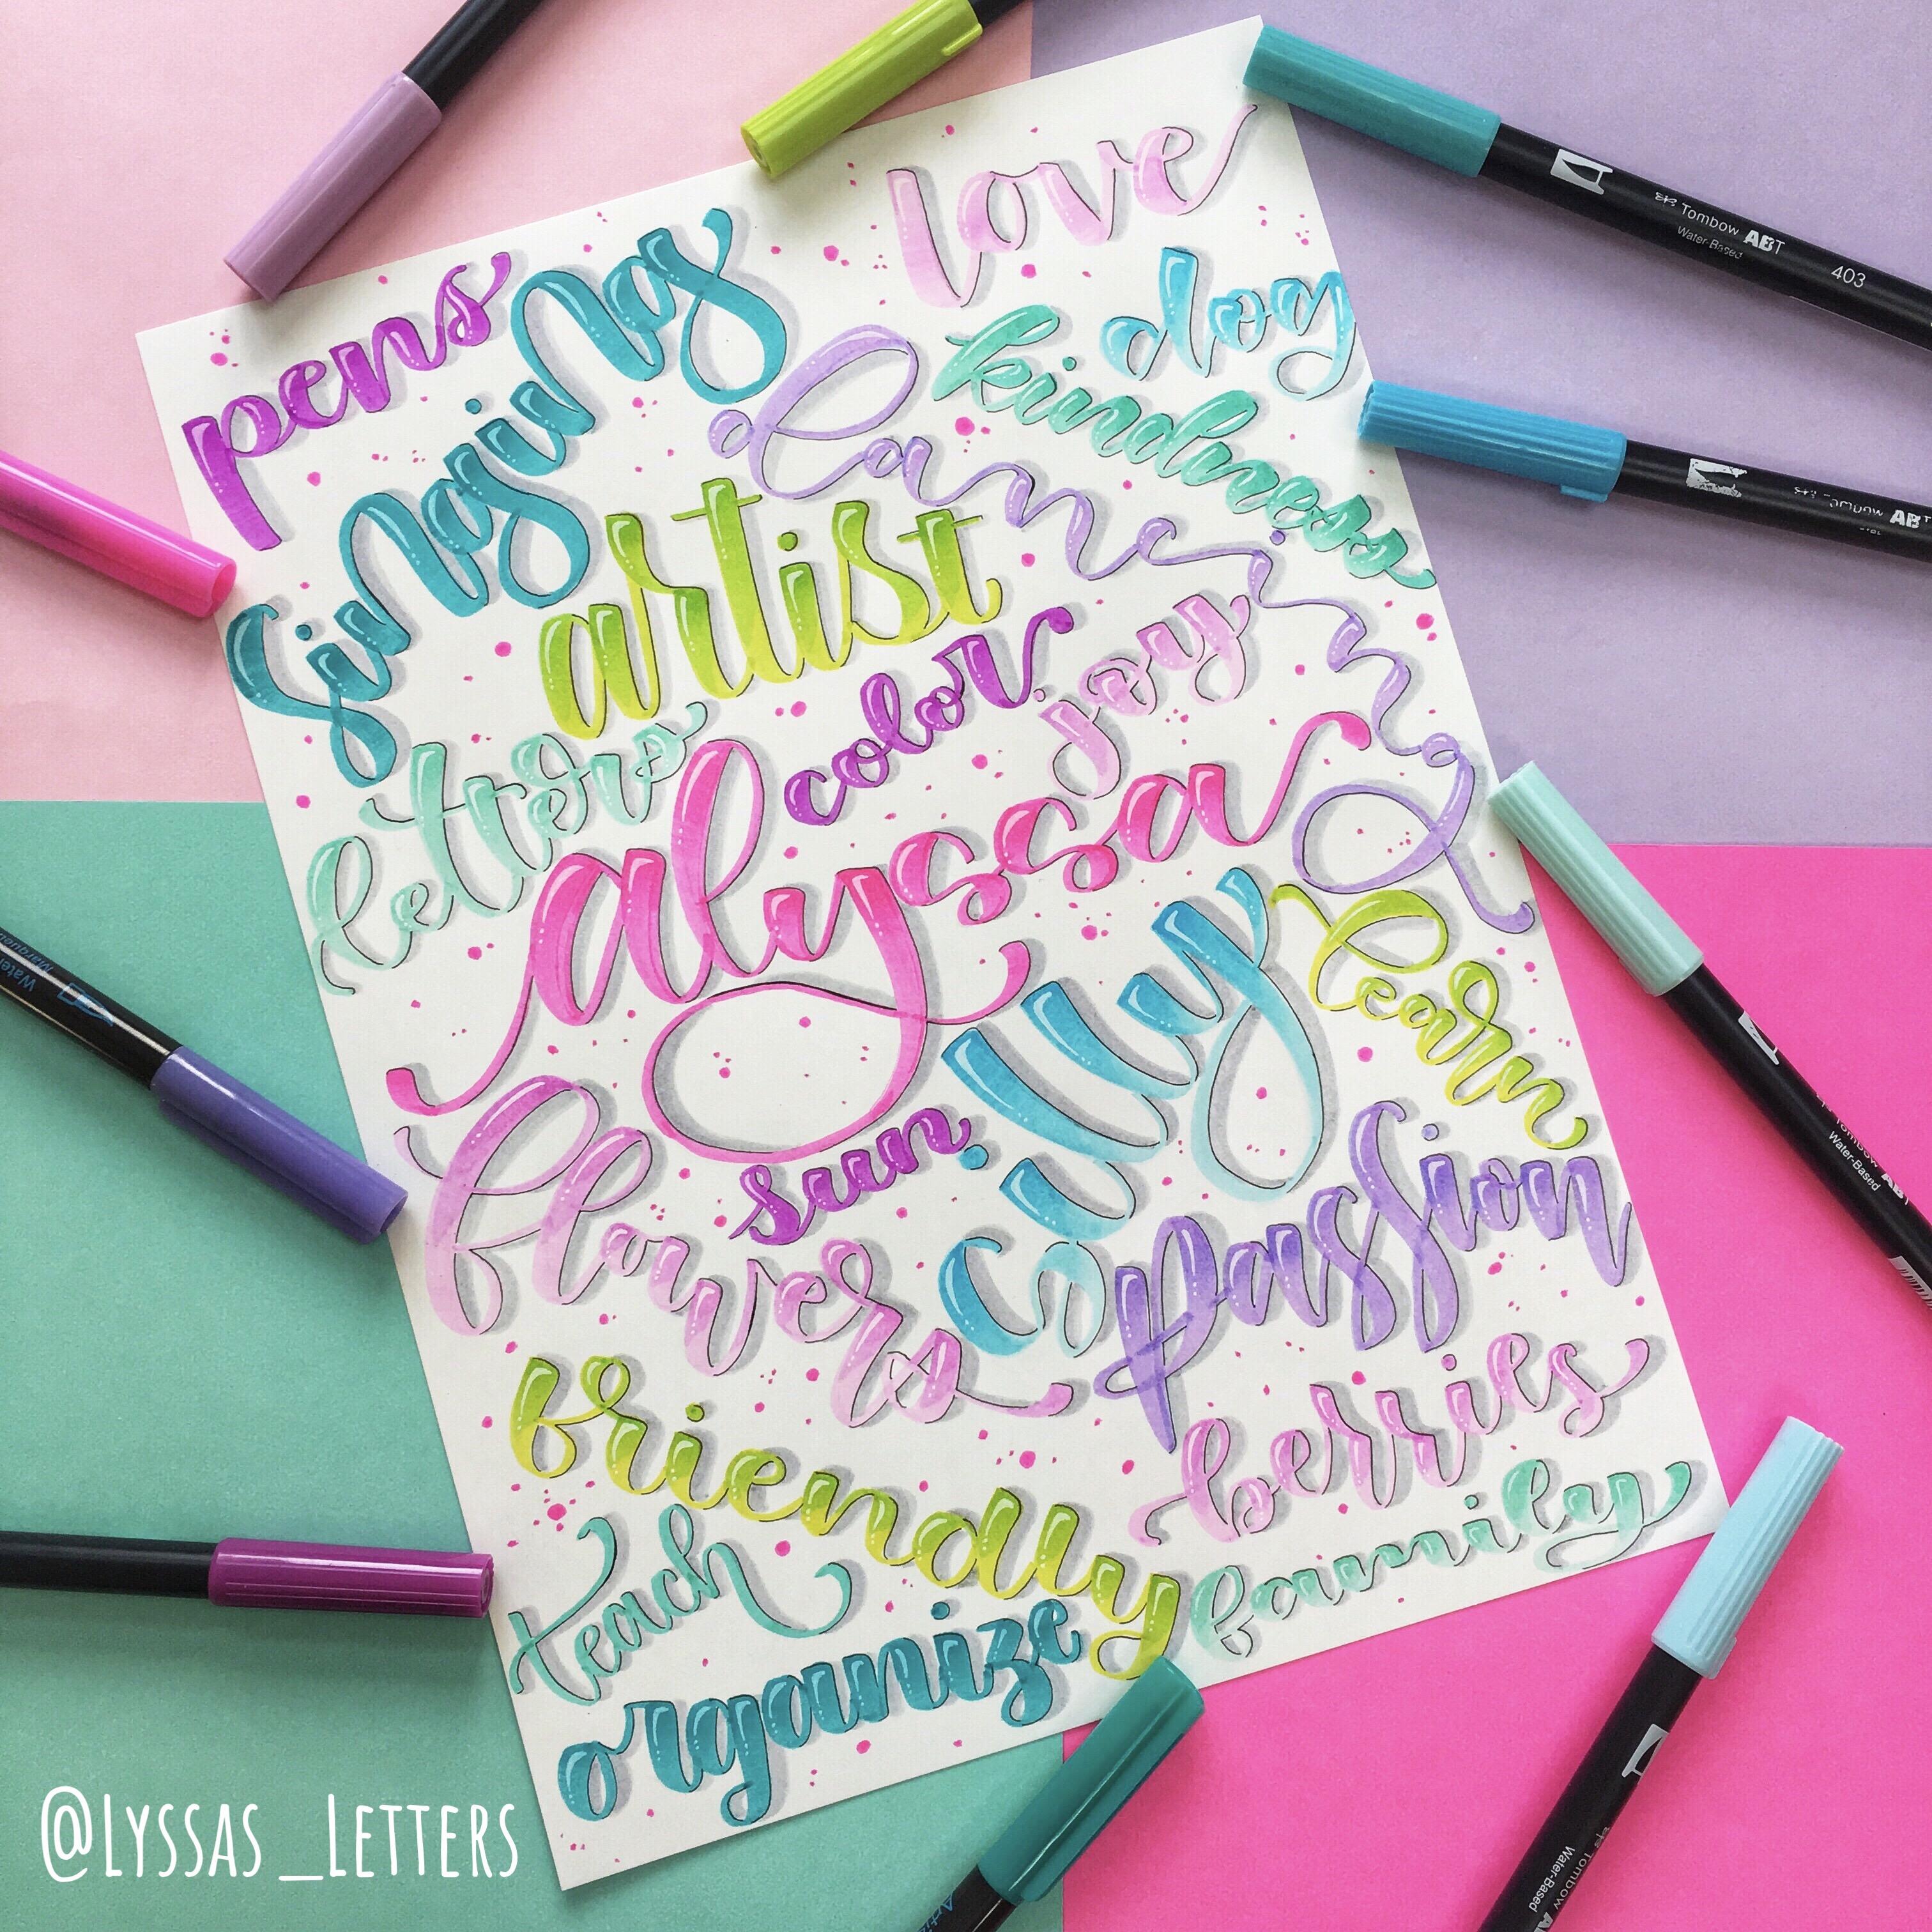 love
pens
singing
dog
kindness
dancing
artist
color
joy
letters
alyssa
learn
silly
sun
flowers
passion
friendly
berries
family
teach
organize
Tombow ABT
Water-Based
403
Tombow ABT
Tombow ABT
Water-Based
Tombow AB
Water-Based
@Lyssas_Letters